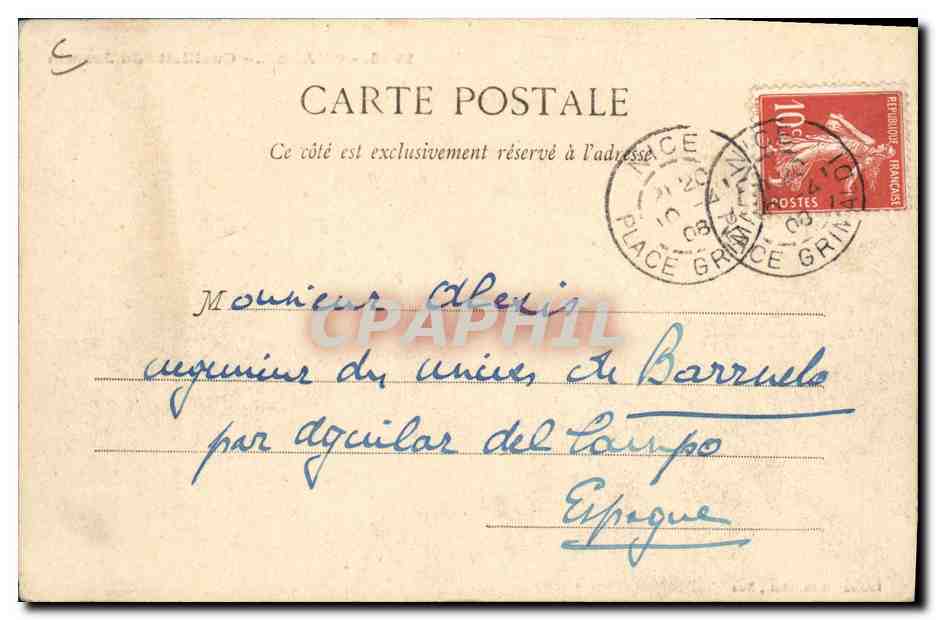 CARTE POSTALE
Ce côté est exclusivement réservé à l'adresse
10c
RÉPUBLIQUE FRANÇAISE
POSTES
NICE
20
10 - 4
08
PLACE GRIMALDI
NICE
08
PLACE GRIMALDI
Monsieur Alexis
CPAPHIL
ingenieur du mines de Barruelo
par Aguilar del Campo
Espagne